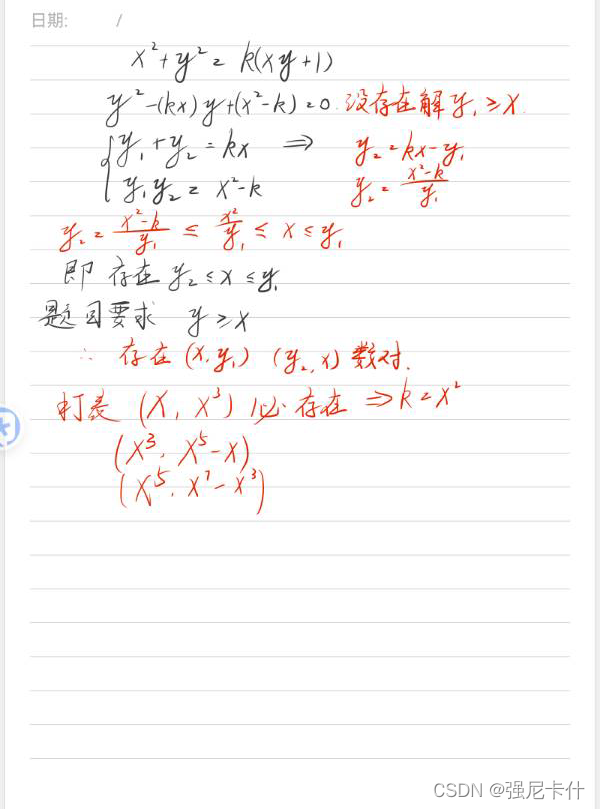 日期: /
x²+y²=k(xy+1)
y²-(kx)y+(x²-k)=0. 没存在解y₁≥x.
{y₁+y₂=kx ⇒ y₂=kx-y₁
y₁y₂=x²-k y₂=(x²-k)/y₁
y₂=(x²-k)/y₁≤x²/y₁≤x≤y₁
即 存在y₂≤x≤y₁
题目要求 y≥x
∴ 存在(x,y₁) (y₂,x)数对.
打表 (x, x³)必存在 ⇒k=x²
(x³, x⁵-x)
(x⁵, x⁷-x³)
CSDN @强尼卡什